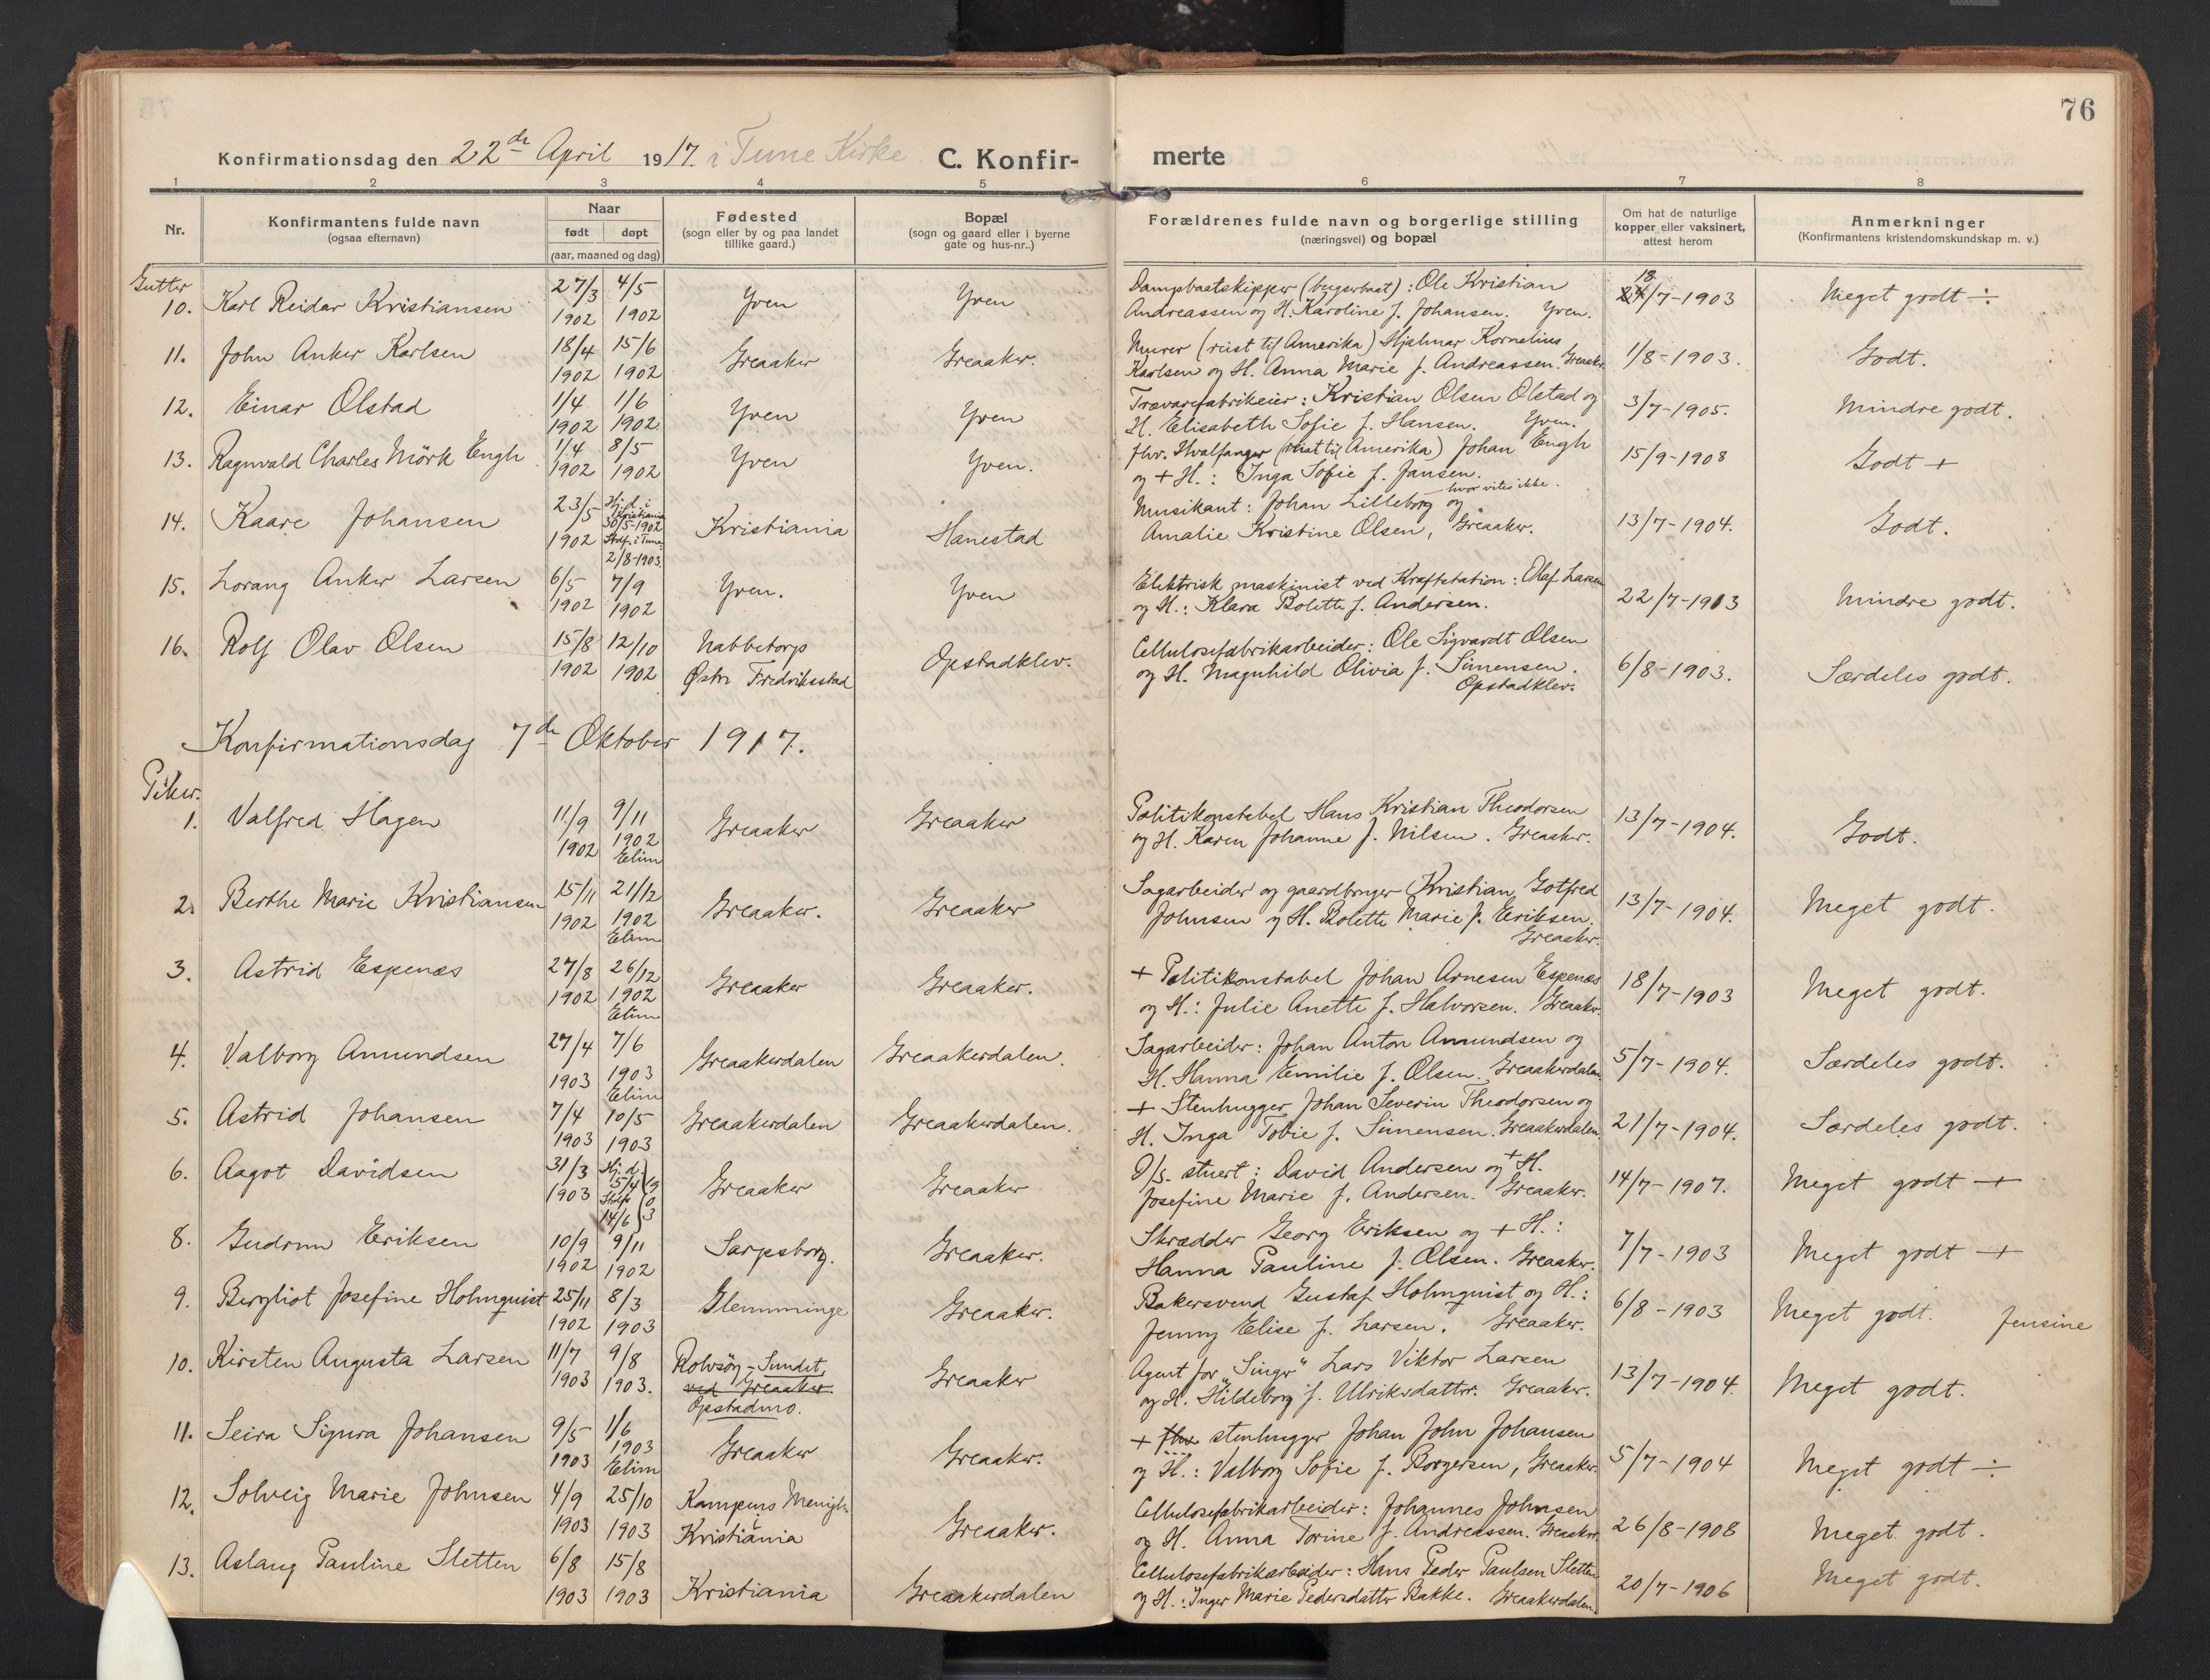 76
Konfirmationsdag den 22de April 1917. i Tune Kirke C. Konfir-merte
1 2 3 4 5 6 7 8
Nr.
Konfirmantens fulde navn
(ogsaa efternavn)
Naar
født døpt
(aar, maaned og dag)
Fødested
(sogn eller by og paa landet
tillike gaard.)
Bopæl
(sogn og gaard eller i byerne
gate og hus-nr..)
Forældrenes fulde navn og borgerlige stilling
(næringsvei) og bopæl
Om hat de naturlige
kopper eller vaksinert,
attest herom
Anmerkninger
(Konfirmantens kristendomskundskap m. v.)
Gutter
10. Karl Reidar Kristiansen 27/3 1902 4/5 1902 Yven Yven
Dampbaatskipper (bugserbaat): Ole Kristian
Andreassen og H. Karoline f. Johansen. Yven.
18/7-1903 Meget godt ÷
11. John Anker Karlsen 18/4 1902 15/6 1902 Greaaker Greaaker.
Murer (reist til Amerika) Hjalmar Kornelius
Karlsen og H. Anna Marie f. Andreassen. Greaaker.
1/8-1903. Godt.
12. Einar Olstad 1/4 1902 1/6 1902 Yven Yven
Trævarefabrikeier: Kristian Olsen Olstad og
H. Elisabeth Sofie f. Hansen. Yven.
3/7-1905. Mindre godt.
13. Ragnvald Charles Mörk Engh 1/4 1902 8/5 1902 Yven Yven.
fhv. Hvalfanger (reist til Amerika) Johan Engh
og + H.: Inga Sofie f. Jansen.
15/9-1908 Godt +
14. Kaare Johansen 23/5 1902 Hj.d. i Kristiania 30/5-1902 Stdf. i Tune 2/8-1903 Kristiania Hanestad
Musikant: Johan Lilleborg – hvor vites ikke. og
Amalie Kristine Olsen, Greaaker.
13/7-1904. Godt.
15. Lorang Anker Larsen 6/5 1902 7/9 1902 Yven. Yven
Elektrisk maskinist ved Kraftstation: Olaf Larsen
og H.: Klara Bolette f. Andersen.
22/7-1903 Mindre godt.
16. Rolf Olav Olsen 15/8 1902 12/10 1902 Nabbetorp Østre Fredriksstad Opstadklev.
Cellulosefabrikarbeider: Ole Sigvardt Olsen
og H. Magnhild Olivia f. Simensen.
Opstadklev.
6/8-1903. Særdeles godt.
Konfirmationsdag 7de Oktober 1917.
Piker.
1. Valfred Hagen 11/9 1902 9/11 1902 Elim Greaaker Greaaker
Politikonstabel Hans Kristian Theodorsen
og H. Karen Johanne f. Nilsen. Greaaker.
13/7-1904. Godt.
2. Berthe Marie Kristiansen 15/11 1902 21/12 1902 Elim Greaaker. Greaaker
Sagarbeider og gaardbruger Kristian Gotfred
Johnsen og H. Bolette Marie f. Eriksen.
Greaaker.
13/7-1904. Meget godt.
3. Astrid Espenæs 27/8 1902 26/12 1902 Elim Greaaker Greaaker.
+ Politikonstabel Johan Arnesen Espenæs
og H.: Julie Anette f. Halvorsen. Greaaker.
18/7-1903 Meget godt.
4. Valborg Amundsen 27/4 1903 7/6 1903 Elim Greaakerdalen Greaakerdalen.
Sagarbeider: Johan Anton Amundsen og
H. Hanna Emilie f. Olsen. Greaakerdalen
5/7-1904. Særdeles godt.
5. Astrid Johansen 7/4 1903 10/5 1903 Greaakerdalen Greaakerdalen.
+ Stenhugger Johan Severin Theodorsen og
H. Inga Tobie f. Simensen. Greaakerdalen
21/7-1904. Særdeles godt.
6. Aagot Davidsen 31/3 1903 Hj.d. 15/4 Stdf. 14/6 1903 Greaaker Greaaker
D/s. stuert: David Andersen og + H.
Josefine Marie f. Andersen. Greaaker.
14/7-1907. Meget godt +
8. Gudrun Eriksen 10/9 1902 9/11 1902 Sarpsborg. Greaaker.
Skrædder Georg Eriksen og + H.:
Hanna Pauline f. Olsen. Greaaker.
7/7-1903 Meget godt +
9. Bergliot Josefine Holmquist 25/11 1902 8/3 1903 Glemminge Greaaker.
Bakersvend Gustaf Holmquist og H.:
Jenny Elise f. Larsen. Greaaker.
6/8-1903 Meget godt. Jensine
10. Kirsten Augusta Larsen 11/7 1903 9/8 1903. Rolvsöy-Sundet ved Greaaker. Opstadmo. Greaaker
Agent for "Singer" Lars Viktor Larsen
og H. Hildeborg f. Ulriksdatter. Greaaker.
13/7-1904. Meget godt.
11. Seira Signra Johansen 9/5 1903 1/6 1903 Elim Greaaker Greaaker.
+ fhv. stenhugger Johan John Johansen
og H.: Valborg Sofie f. Borgersen, Greaaker.
5/7-1904 Meget godt ÷
12. Solveig Marie Johnsen 4/9 1903 25/10 1903 Kampens Menigh. i Kristiania Greaaker.
Cellulosefabrikarbeider: Johannes Johnsen
og H. Anna Torine f. Andreassen. Greaaker.
26/8-1908 Meget godt.
13. Aslaug Pauline Sletten 6/8 1903 15/8 1903 Kristiania Greaakerdalen
Cellulosefabrikarbeider: Hans Peder Paulsen Sletten
og H.: Inger Marie Pedersdatter Bakke. Greaakerdalen.
20/7-1906 Meget godt.